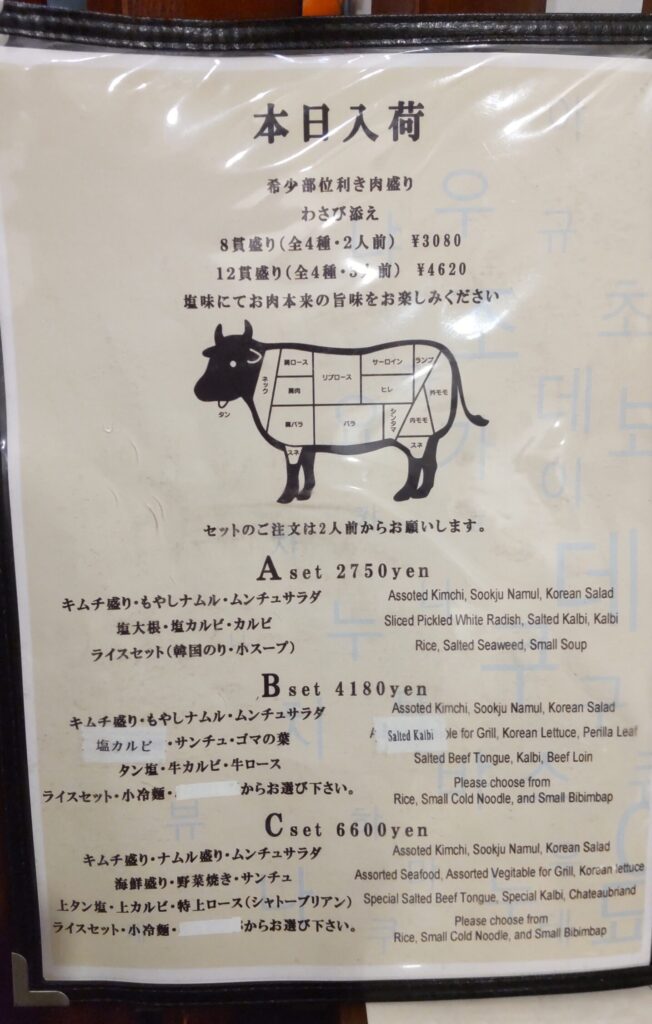 本日入荷
希少部位利き肉盛り
わさび添え
8貫盛り(全4種・2人前) ¥3080
12貫盛り(全4種・3人前) ¥4620
塩味にてお肉本来の旨味をお楽しみください
タン
ネック
肩ロース
肩肉
肩バラ
スネ
リブロース
バラ
サーロイン
ヒレ
シンタマ
ランプ
外モモ
内モモ
スネ
セットのご注文は2人前からお願いします。
A set 2750yen
キムチ盛り・もやしナムル・ムンチュサラダ Assoted Kimchi, Sookju Namul, Korean Salad
塩大根・塩カルビ・カルビ Sliced Pickled White Radish, Salted Kalbi, Kalbi
ライスセット(韓国のり・小スープ) Rice, Salted Seaweed, Small Soup
B set 4180yen
キムチ盛り・もやしナムル・ムンチュサラダ Assoted Kimchi, Sookju Namul, Korean Salad
塩カルビ・サンチュ・ゴマの葉 Salted Kalbi for Grill, Korean Lettuce, Perilla Leaf
タン塩・牛カルビ・牛ロース Salted Beef Tongue, Kalbi, Beef Loin
ライスセット・小冷麺・からお選び下さい。 Please choose from
Rice, Small Cold Noodle, and Small Bibimbap
C set 6600yen
キムチ盛り・ナムル盛り・ムンチュサラダ Assoted Kimchi, Sookju Namul, Korean Salad
海鮮盛り・野菜焼き・サンチュ Assorted Seafood, Assorted Vegitable for Grill, Korean lettuce
上タン塩・上カルビ・特上ロース(シャトーブリアン) Special Salted Beef Tongue, Special Kalbi, Chateaubriand
ライスセット・小冷麺・からお選び下さい。 Please choose from
Rice, Small Cold Noodle, and Small Bibimbap